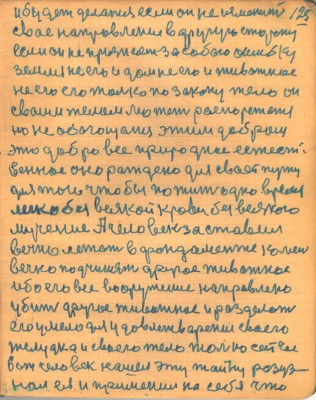 и будет делатся если он не изменит 125
свое направления в другую сторону
если он не признает за собою ошибку
земля не его и дом не его и животное
не его это только по закону тело он
своим телом может распорежатся
но не обогощатся этим добром
это добро все природное естест-
венное оно раждено для своего пути
для того чтобы пожить одно время
легко без всякой крови без всякого
мучение А человек заставил
вечно лежат в фондаменте камен
легко подчинят другое животное
ибо его все вооружение направлено
убит другое животное и разделат
его умело для удовлетварении своего
желудка и своего тело только сейчас
вот человек нашел эту тайну розуз-
нал ея и применил на себя что